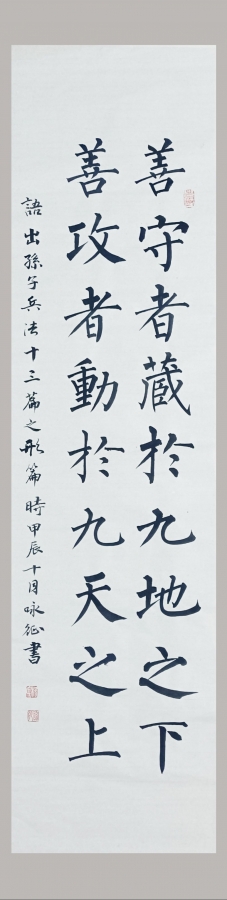 善守者藏於九地之下
善攻者動於九天之上
語出孫子兵法十三篇之形篇時甲辰十月咏征書